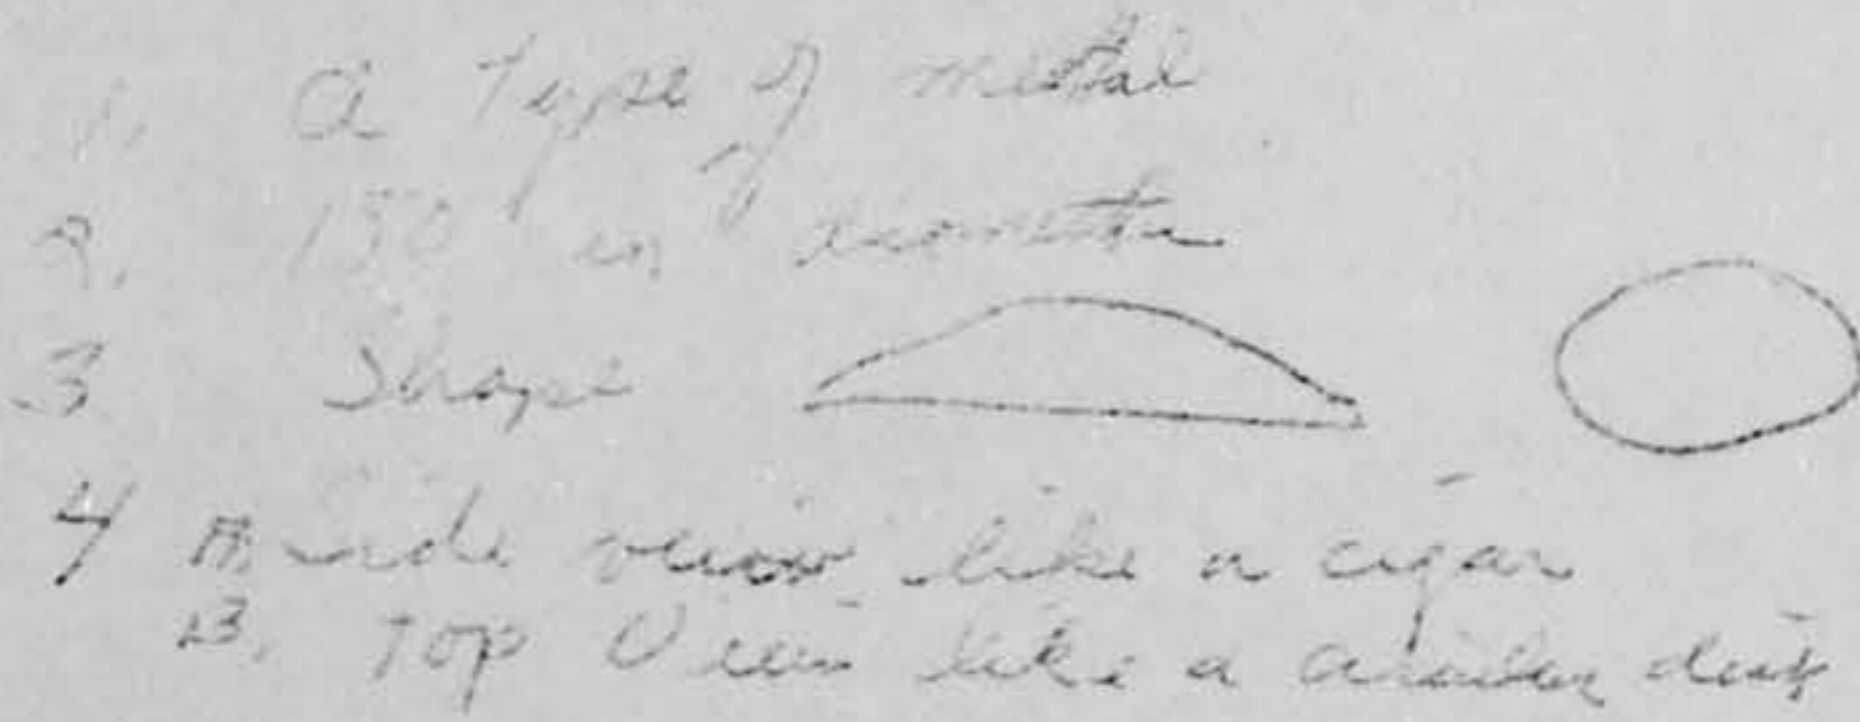 1. A Type of metal
2. 150' in diameter
3 Shape
4 A. Side view like a cigar
B. Top View like a circular disk